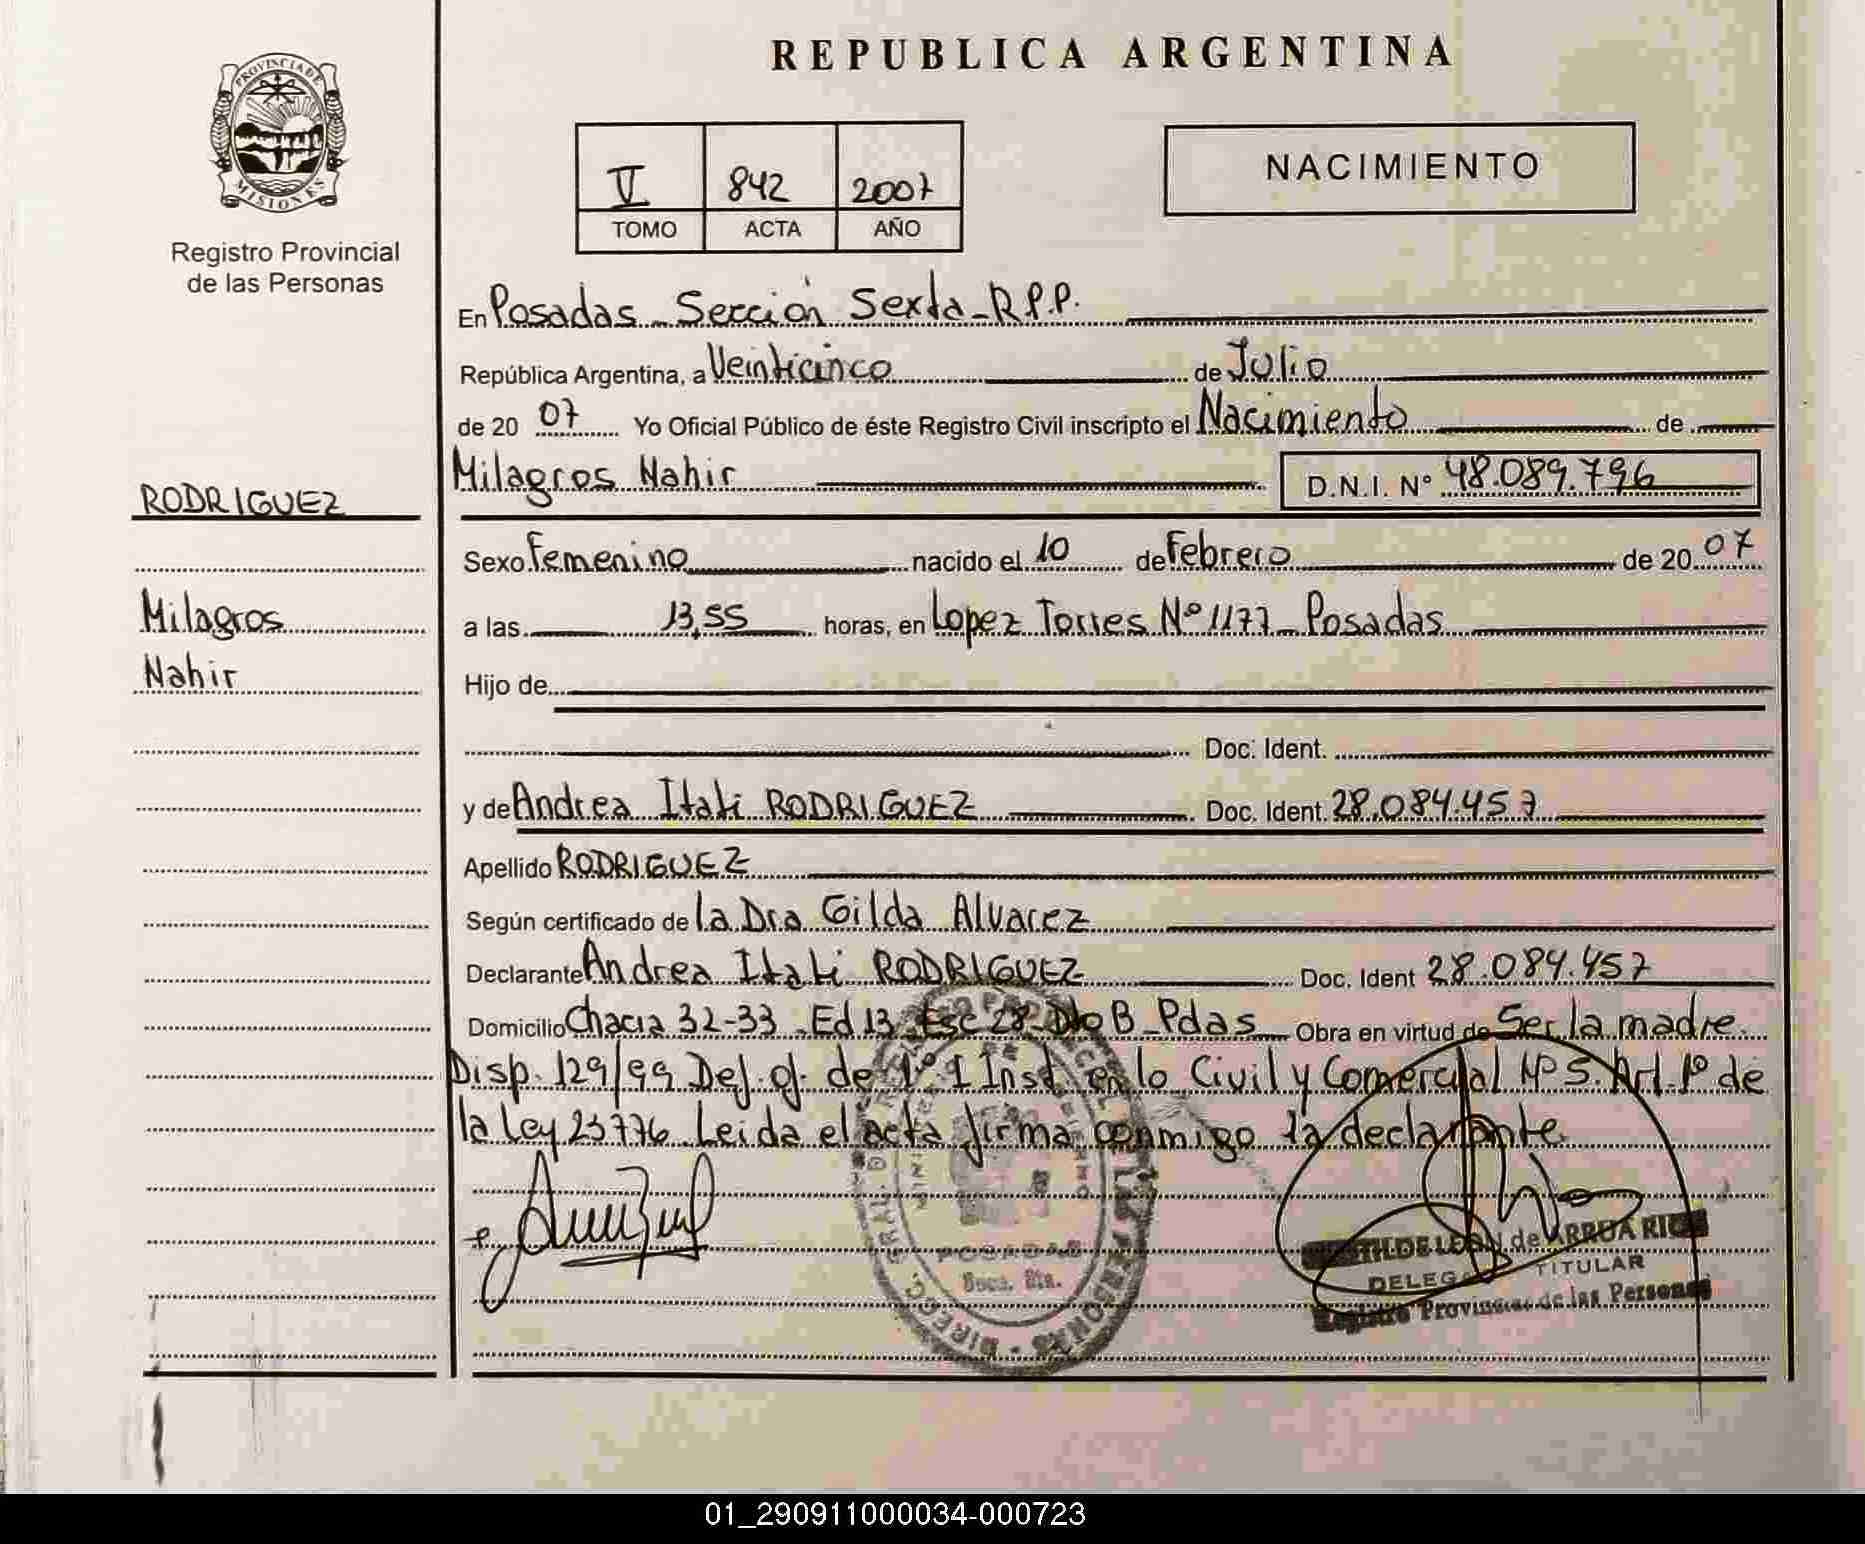 PROVINCIA DE
MISIONES
Registro Provincial
de las Personas
RODRIGUEZ
Milagros
Nahir
REPUBLICA ARGENTINA
V 842 2007
TOMO ACTA AÑO
NACIMIENTO
En Posadas - Sección Sexta - R.P.P.
República Argentina, a Veinticinco de Julio
de 20 07 Yo Oficial Público de éste Registro Civil inscripto el Nacimiento de
Milagros Nahir D.N.I. Nº 48.089.796
Sexo Femenino nacido el 10 de Febrero de 20 07
a las 13,55 horas, en Lopez Torres Nº 1177 - Posadas
Hijo de
Doc. Ident.
y de Andrea Itati RODRIGUEZ Doc. Ident. 28.084.457
Apellido RODRIGUEZ
Según certificado de la Dra Gilda Alvarez
Declarante Andrea Itati RODRIGUEZ Doc. Ident 28.084.457
Domicilio Chacra 32-33 - Ed 13 - Esc 28 - Dto B - Pdas - Obra en virtud de Ser la madre.
Disp. 129/99 Def. of. de 1º Inst en lo Civil y Comercial Nº 5. Art. 1º de
la Ley 23776. Leida el acta firma conmigo la declarante
POSADAS
Secc. 6ta.
DE LEON de ARRUA RIOS
TITULAR
Registro Provincial de las Personas
01_290911000034-000723